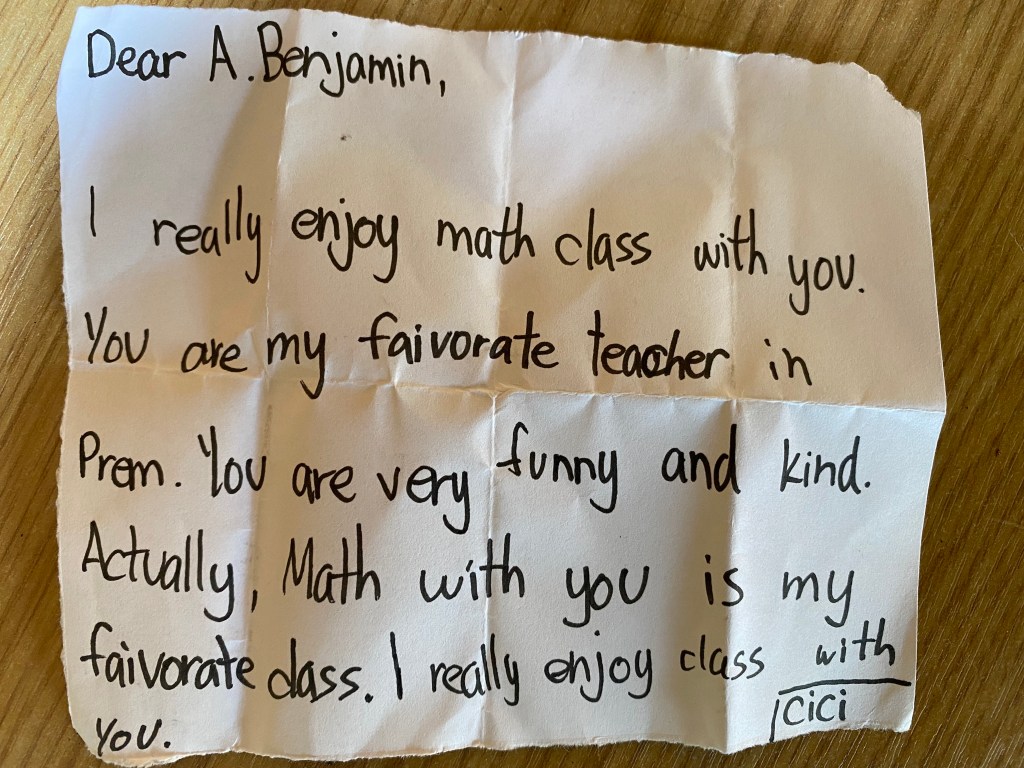 Dear A. Benjamin,
I really enjoy math class with you.
You are my faivorate teacher in
Prem. You are very funny and kind.
Actually, Math with you is my
faivorate class. I really enjoy class with
you.
cici